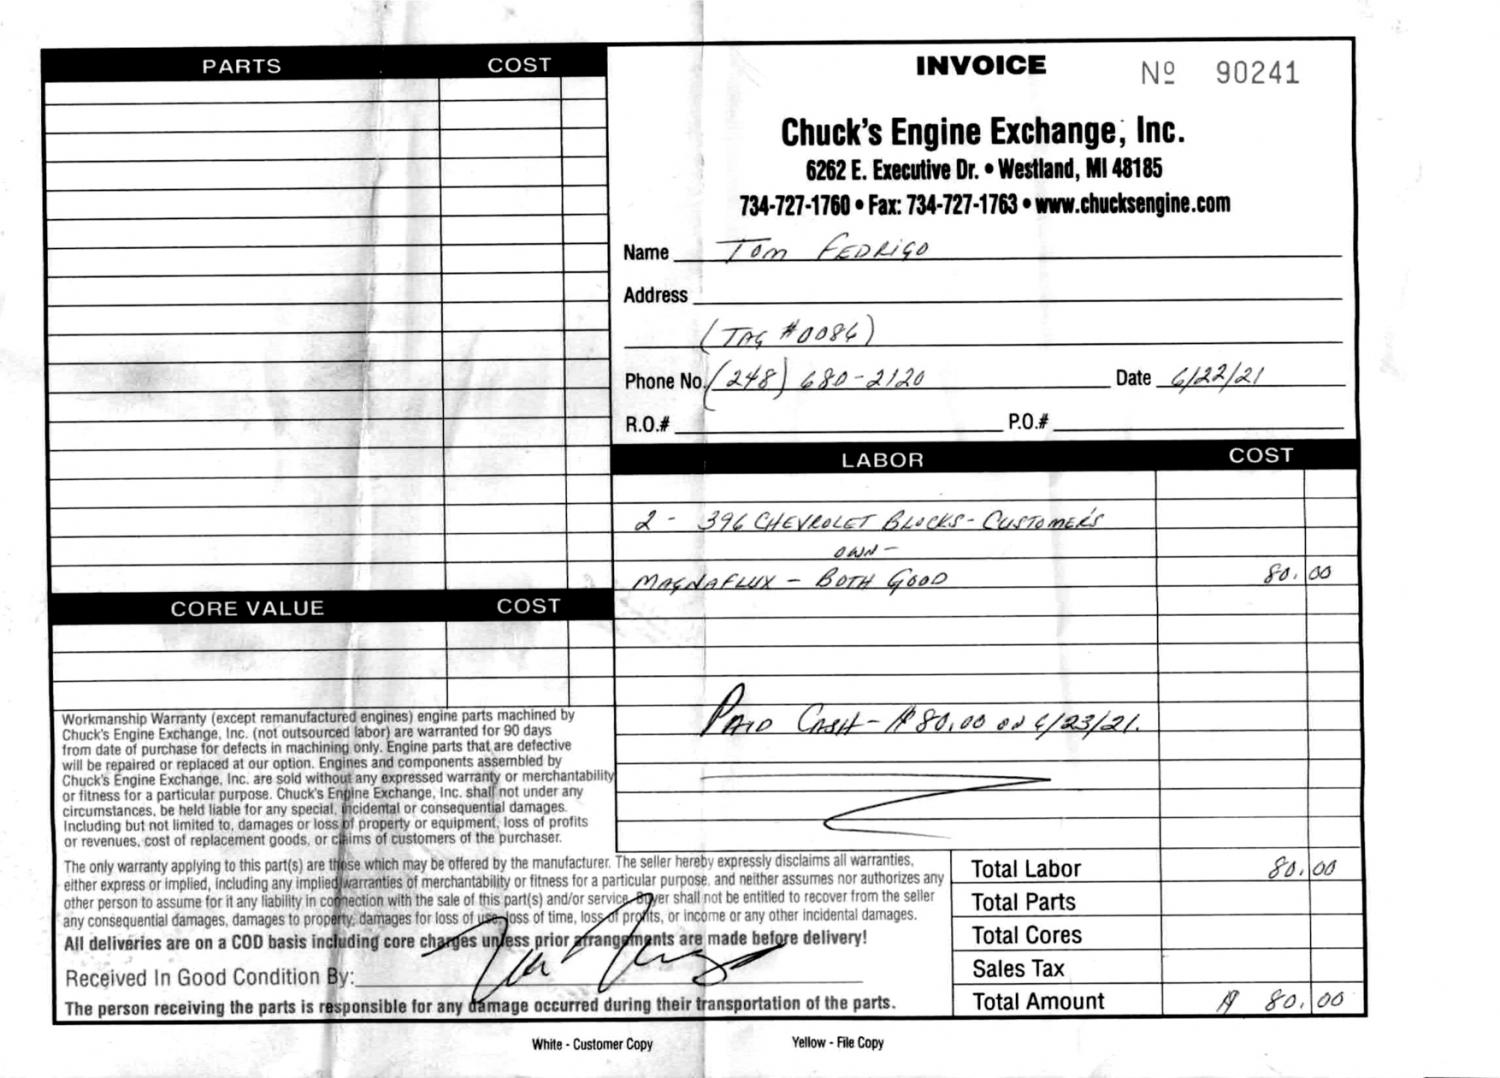 PARTS COST
INVOICE Nº 90241
Chuck's Engine Exchange, Inc.
6262 E. Executive Dr. • Westland, MI 48185
734-727-1760 • Fax: 734-727-1763 • www.chucksengine.com
Name TOM FEDRIGO
Address
(TAG #0086)
Phone No. (248) 680-2120 Date 6/22/21
R.O.# P.O.#
LABOR COST
2 - 396 CHEVROLET BLOCKS - CUSTOMER'S
OWN -
MAGNAFLUX - BOTH GOOD 80.00
PAID CASH - $80.00 ON 6/23/21.
CORE VALUE COST
Workmanship Warranty (except remanufactured engines) engine parts machined by
Chuck's Engine Exchange, Inc. (not outsourced labor) are warranted for 90 days
from date of purchase for defects in machining only. Engine parts that are defective
will be repaired or replaced at our option. Engines and components assembled by
Chuck's Engine Exchange, Inc. are sold without any expressed warranty or merchantability
or fitness for a particular purpose. Chuck's Engine Exchange, Inc. shall not under any
circumstances, be held liable for any special, incidental or consequential damages.
Including but not limited to, damages or loss of property or equipment, loss of profits
or revenues, cost of replacement goods, or claims of customers of the purchaser.
The only warranty applying to this part(s) are those which may be offered by the manufacturer. The seller hereby expressly disclaims all warranties,
either express or implied, including any implied warranties of merchantability or fitness for a particular purpose, and neither assumes nor authorizes any
other person to assume for it any liability in connection with the sale of this part(s) and/or service. Buyer shall not be entitled to recover from the seller
any consequential damages, damages to property, damages for loss of use, loss of time, loss of profits, or income or any other incidental damages.
All deliveries are on a COD basis including core charges unless prior arrangements are made before delivery!
Received In Good Condition By:
The person receiving the parts is responsible for any damage occurred during their transportation of the parts.
Total Labor 80.00
Total Parts
Total Cores
Sales Tax
Total Amount $ 80.00
White - Customer Copy Yellow - File Copy